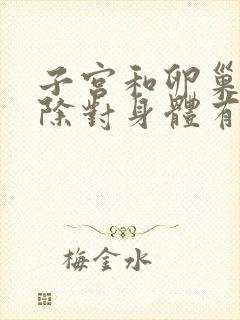 子宮和卵巢
除對身體有
梅金水